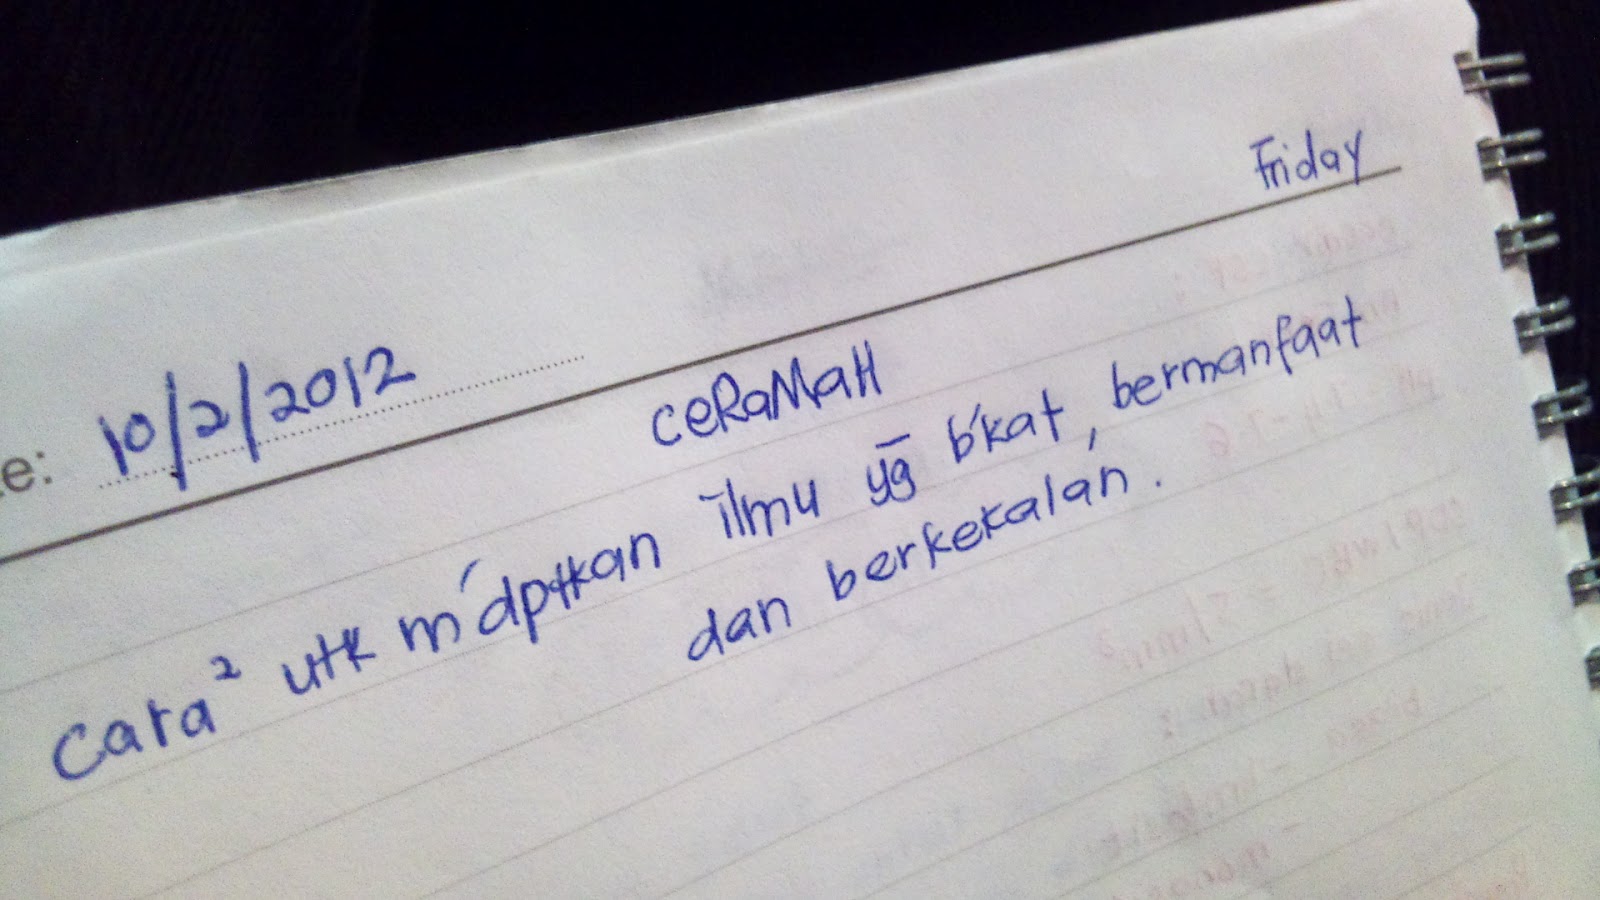 e: 10/2/2012 Friday
ceRaMaH
cara² utk m'dptkan ilmu yg b'kat, bermanfaat
dan berkekalan.